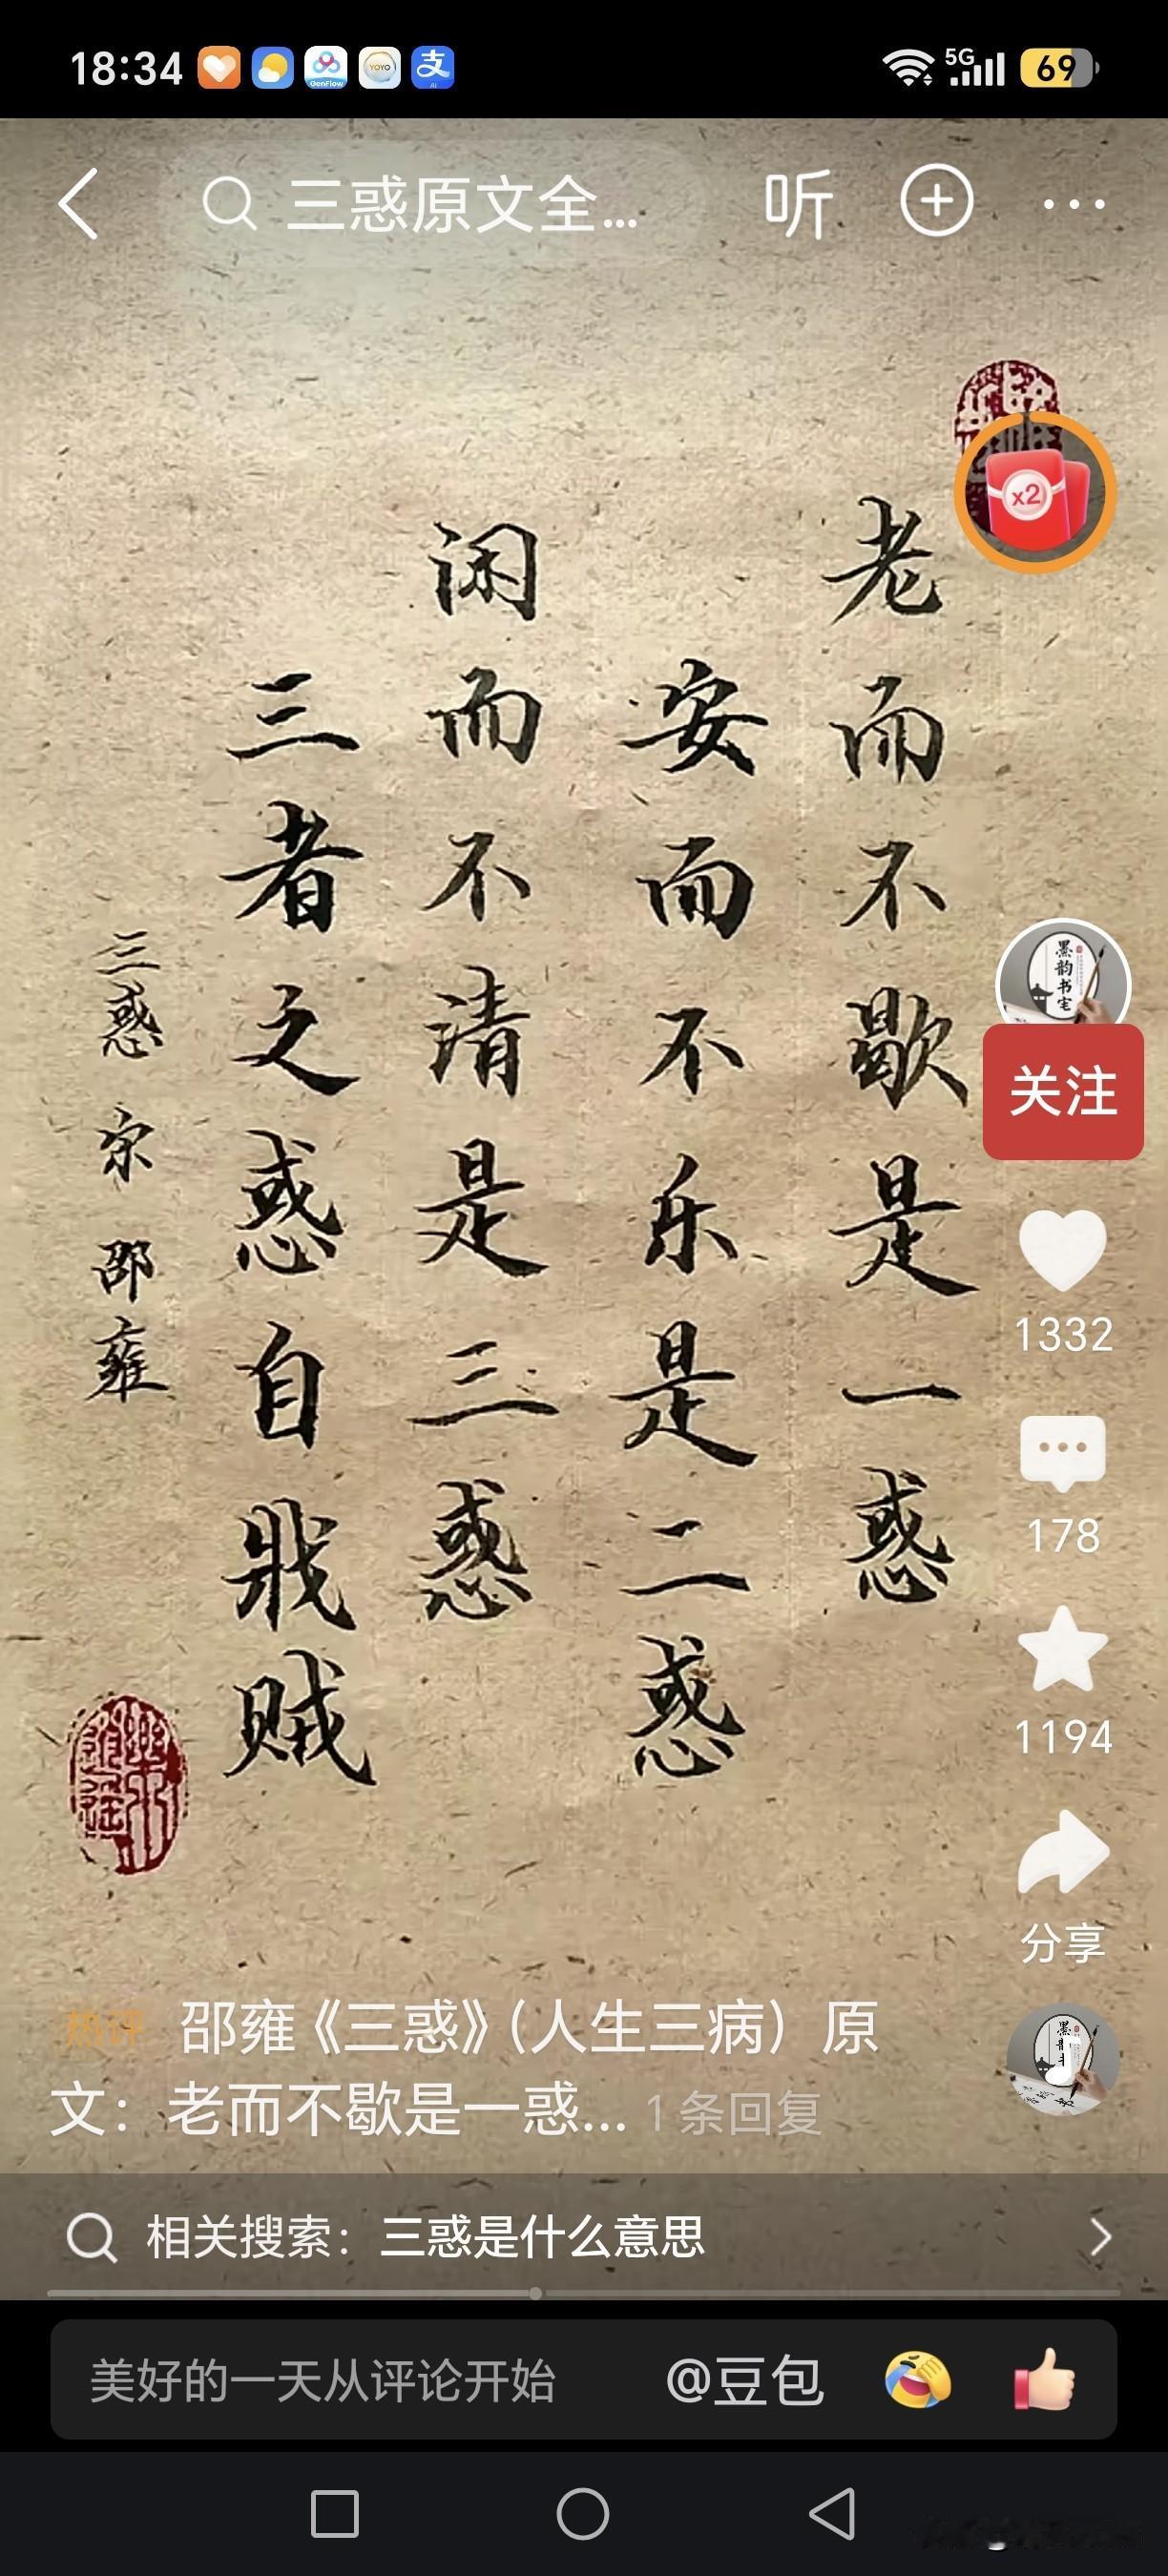 18:34
GenFlow
YOYO
支
AI
5G
69
三惑原文全...
听
x2
老而不歇是一惑
安而不乐是二惑
闲而不清是三惑
三者之惑自戕贼
三惑 宋 邵雍
墨韵书宅
关注
1332
178
1194
分享
热评 邵雍《三惑》(人生三病)原
文：老而不歇是一惑... 1条回复
相关搜索：三惑是什么意思
美好的一天从评论开始
@豆包